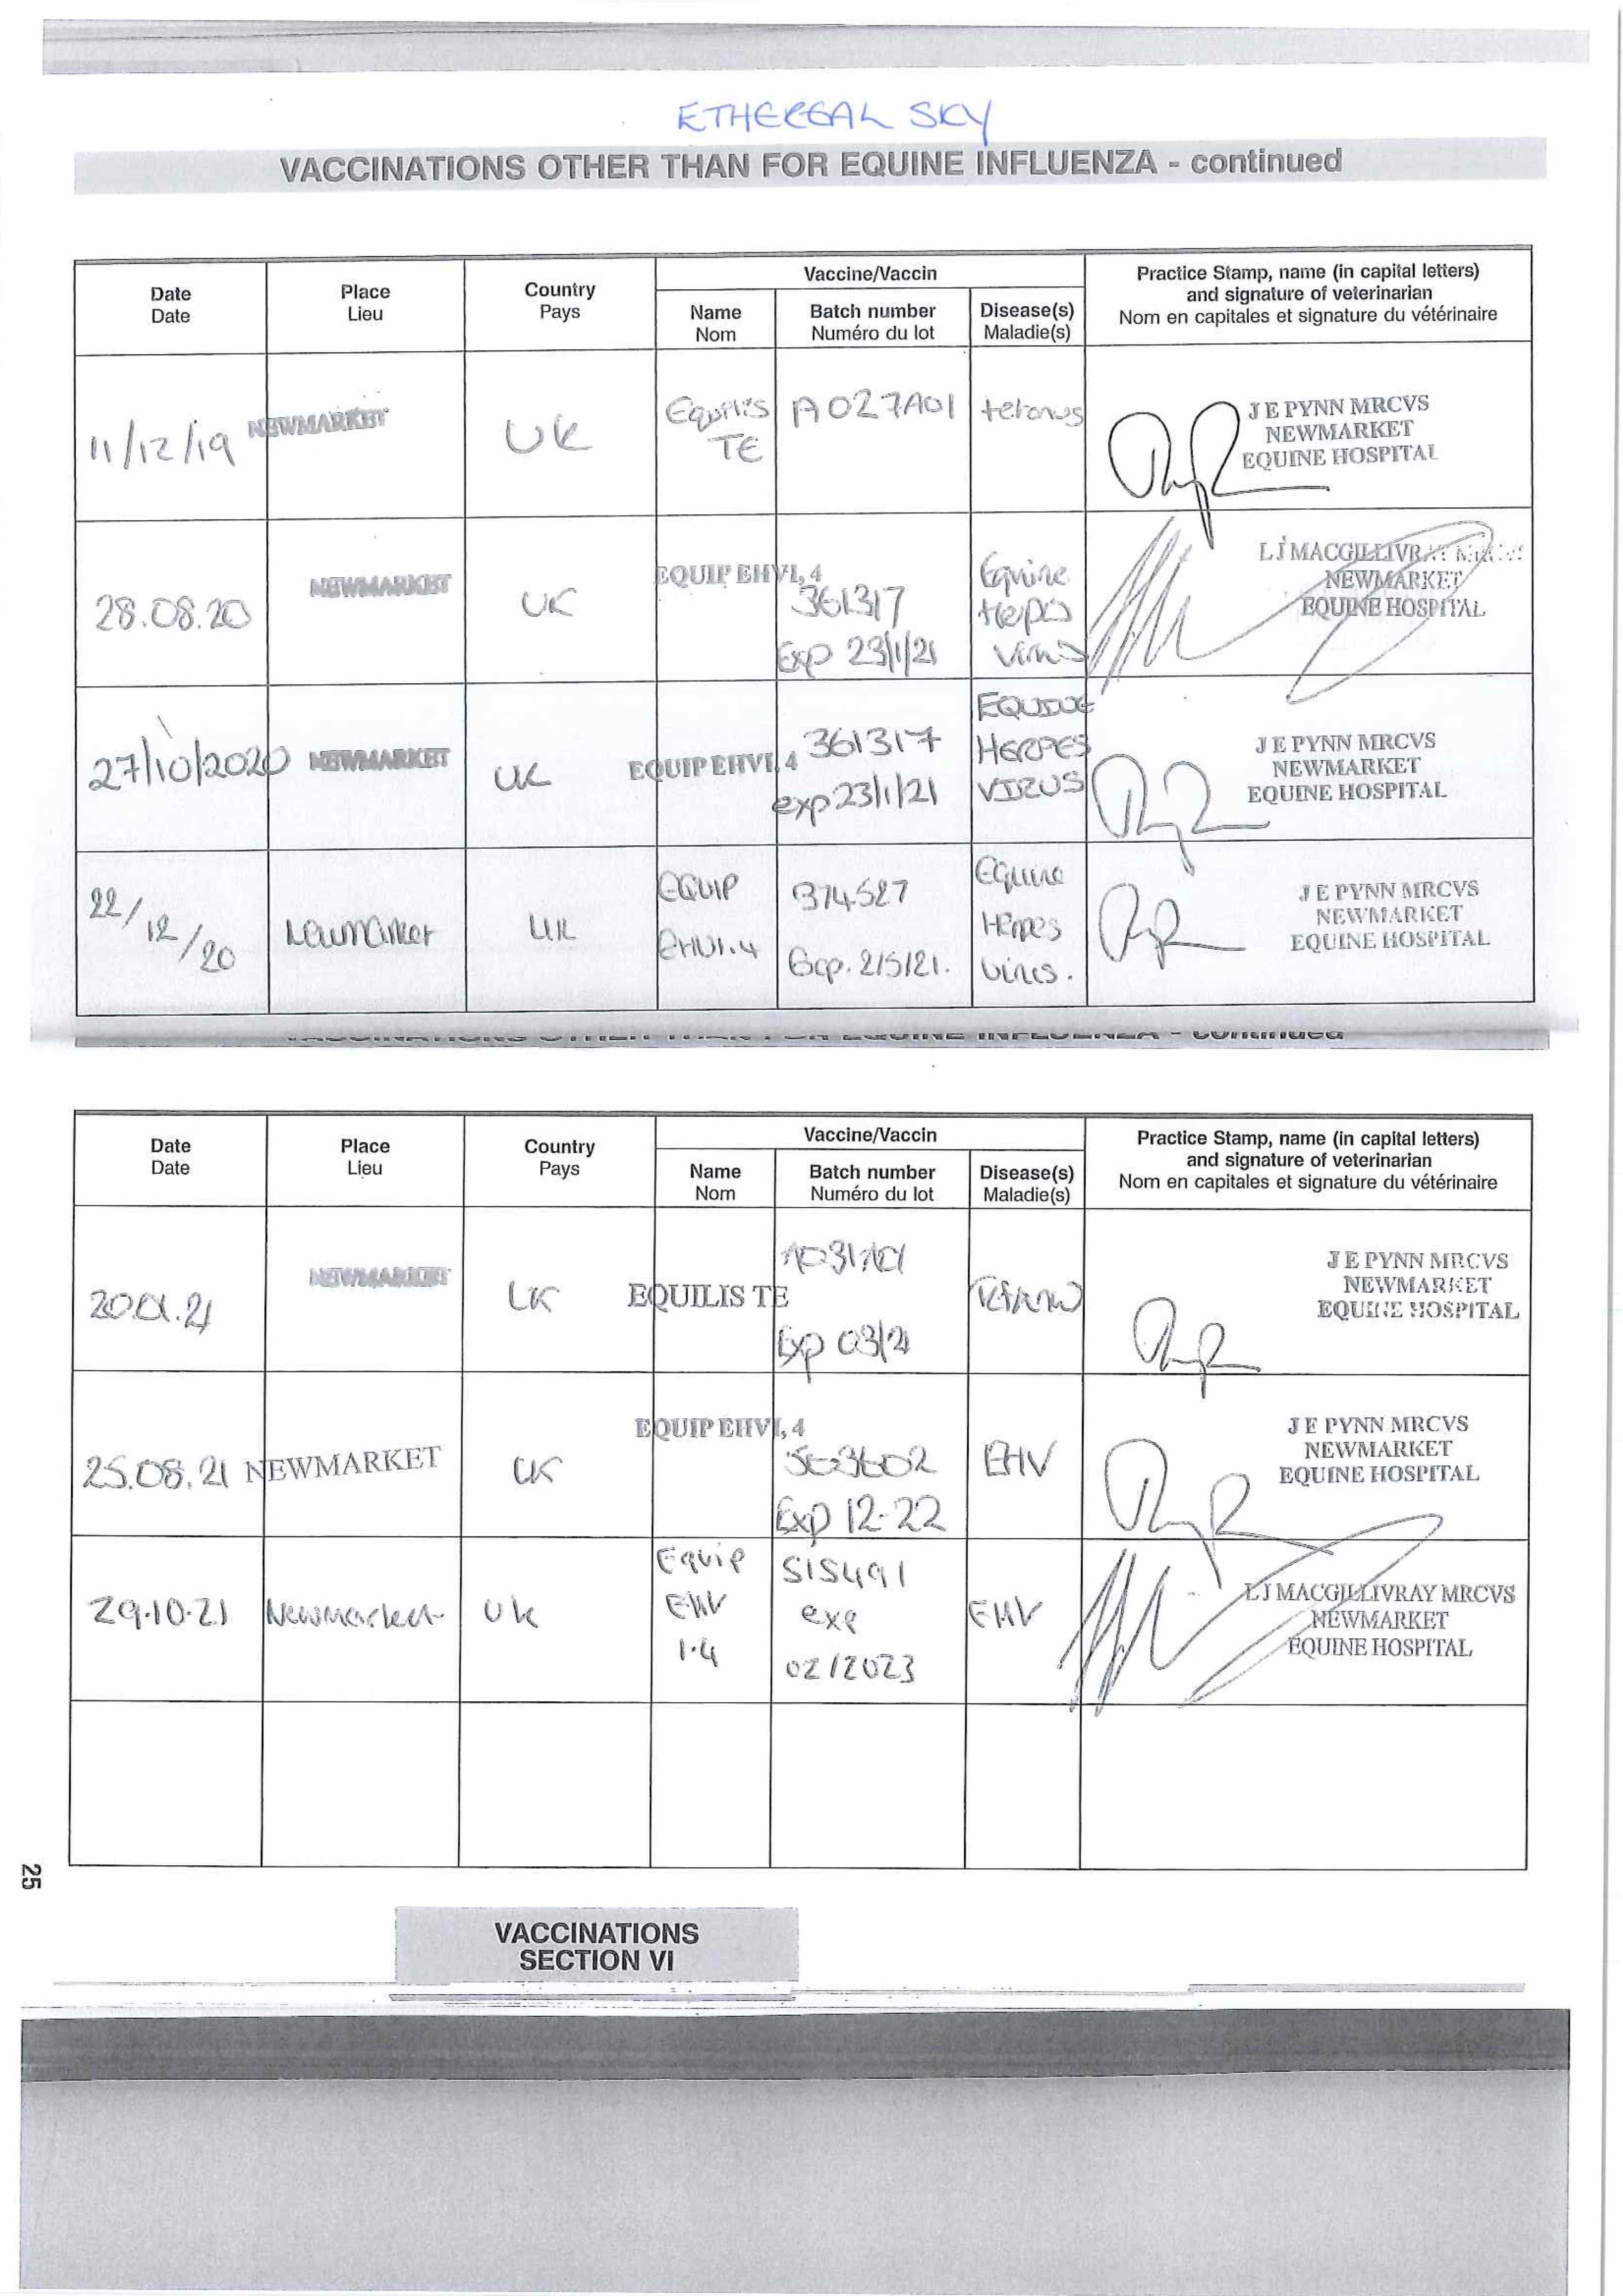 ETHEREAL SKY
VACCINATIONS OTHER THAN FOR EQUINE INFLUENZA - continued
Date
Date
Place
Lieu
Country
Pays
Vaccine/Vaccin
Name
Nom
Batch number
Numéro du lot
Disease(s)
Maladie(s)
Practice Stamp, name (in capital letters)
and signature of veterinarian
Nom en capitales et signature du vétérinaire
11/12/19
NEWMARKET
UK
Equilis
TE
A027A01
tetanus
J E PYNN MRCVS
NEWMARKET
EQUINE HOSPITAL
28.08.20
NEWMARKET
UK
EQUIP EHV1, 4
361317
Exp 23/1/21
Equine
Herpes
Virus
L J MACGILLIVRAY MRCVS
NEWMARKET
EQUINE HOSPITAL
27/10/2020
NEWMARKET
UK
EQUIP EHV1, 4
361317
exp 23/1/21
EQUINE
HERPES
VIRUS
J E PYNN MRCVS
NEWMARKET
EQUINE HOSPITAL
22/12/20
Newmarket
UK
EQUIP
EHV1.4
374527
Exp. 2/5/21.
Equine
Herpes
Virus.
J E PYNN MRCVS
NEWMARKET
EQUINE HOSPITAL
VACCINATIONS OTHER THAN FOR EQUINE INFLUENZA - continued
Date
Date
Place
Lieu
Country
Pays
Vaccine/Vaccin
Name
Nom
Batch number
Numéro du lot
Disease(s)
Maladie(s)
Practice Stamp, name (in capital letters)
and signature of veterinarian
Nom en capitales et signature du vétérinaire
20.01.21
NEWMARKET
UK
EQUILIS TE
A031A01
Exp 03/21
J E PYNN MRCVS
NEWMARKET
EQUINE HOSPITAL
25.08.21
NEWMARKET
UK
EQUIP EHV1, 4
Exp 12-22
EHV
J E PYNN MRCVS
NEWMARKET
EQUINE HOSPITAL
29.10.21
Newmarket
Uk
Equip
EHV
1.4
515491
exp
02/2023
EHV
L J MACGILLIVRAY MRCVS
NEWMARKET
EQUINE HOSPITAL
25
VACCINATIONS
SECTION VI